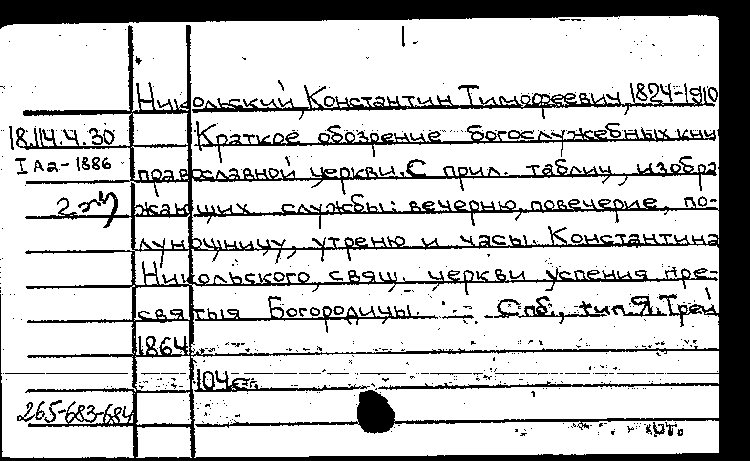 Никольский, Константин Тимофеевич, 1824-1910
18.114.4.30 Краткое обозрение богослужебных кни
I Аа-1886 православной церкви. С прил. таблиц, изобра-
2 эк жающих службы: вечерню, повечерие, по-
лунощницу, утреню и часы. Константина
Никольского, свящ. церкви успения пре-
святыя Богородицы. - Спб., тип. Я. Трей
1864
104 с.
265-683-684